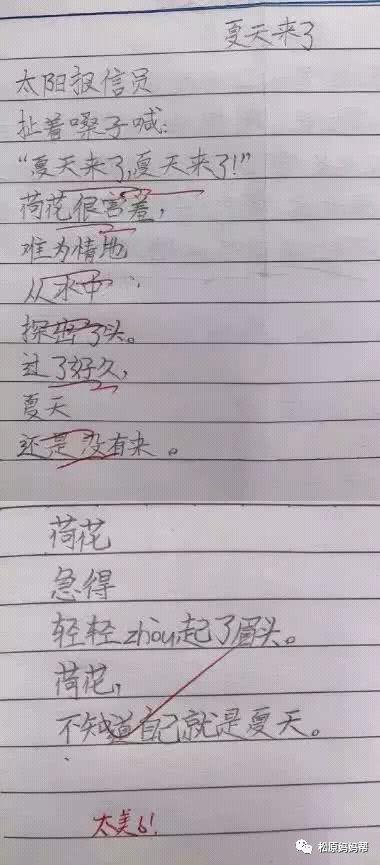 夏天来了
太阳报信员
扯着嗓子喊:
“夏天来了,夏天来了!”
荷花很害羞,
难为情地
从水中
探出了头。
过了好久,
夏天
还是没有来。
荷花
急得
轻轻zhou起了眉头。
荷花,
不知道自己就是夏天。
太美了!
松原妈妈帮